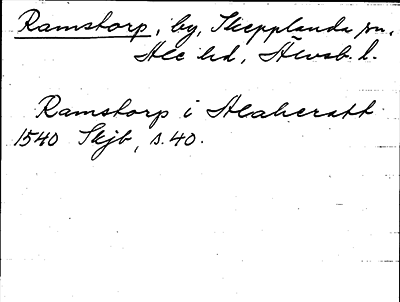 Ramstorp, by, Skepplanda sn,
Ale hd, Älvsb. l.
Ramstorp i Aleheratt
1540 Skjb, s. 40.